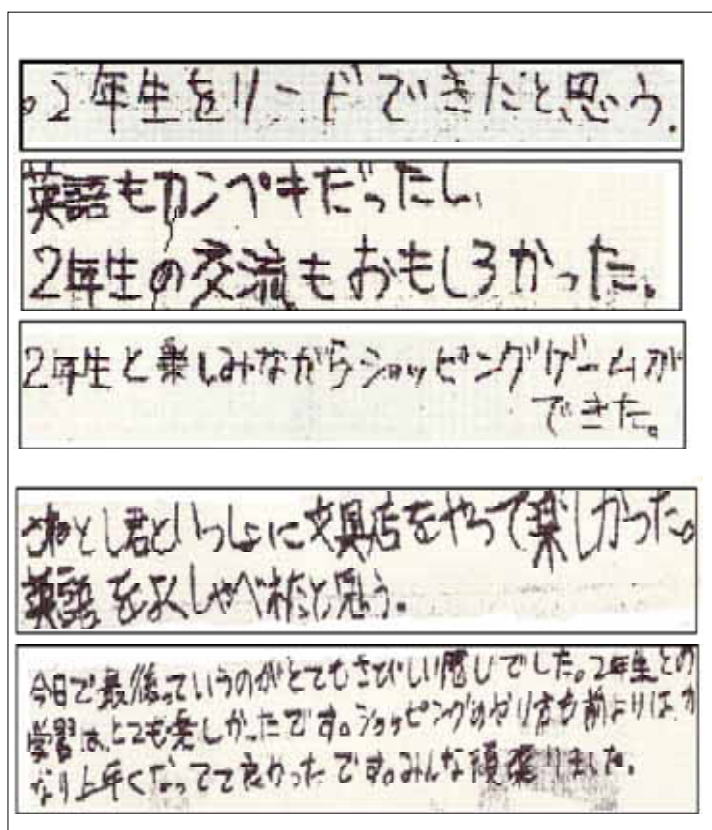 。2年生をリードできたと思う.
英語もカンペキだったし、
2年生の交流もおもしろかった。
2年生と楽しみながらショッピングゲームが
できた。
さねとし君といっしょに文具店をやって楽しかった。
英語をよくしゃべれたと思う。
今日で最後っていうのがとてもさびしい感じでした。2年生との
学習は、とても楽しかったです。ショッピングのやり方も前よりは、か
なり上手くなってて良かったです。みんな頑張りました。